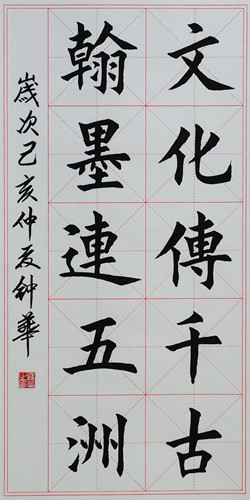 文化傳千古
翰墨連五洲
歲次己亥仲夏鈡華